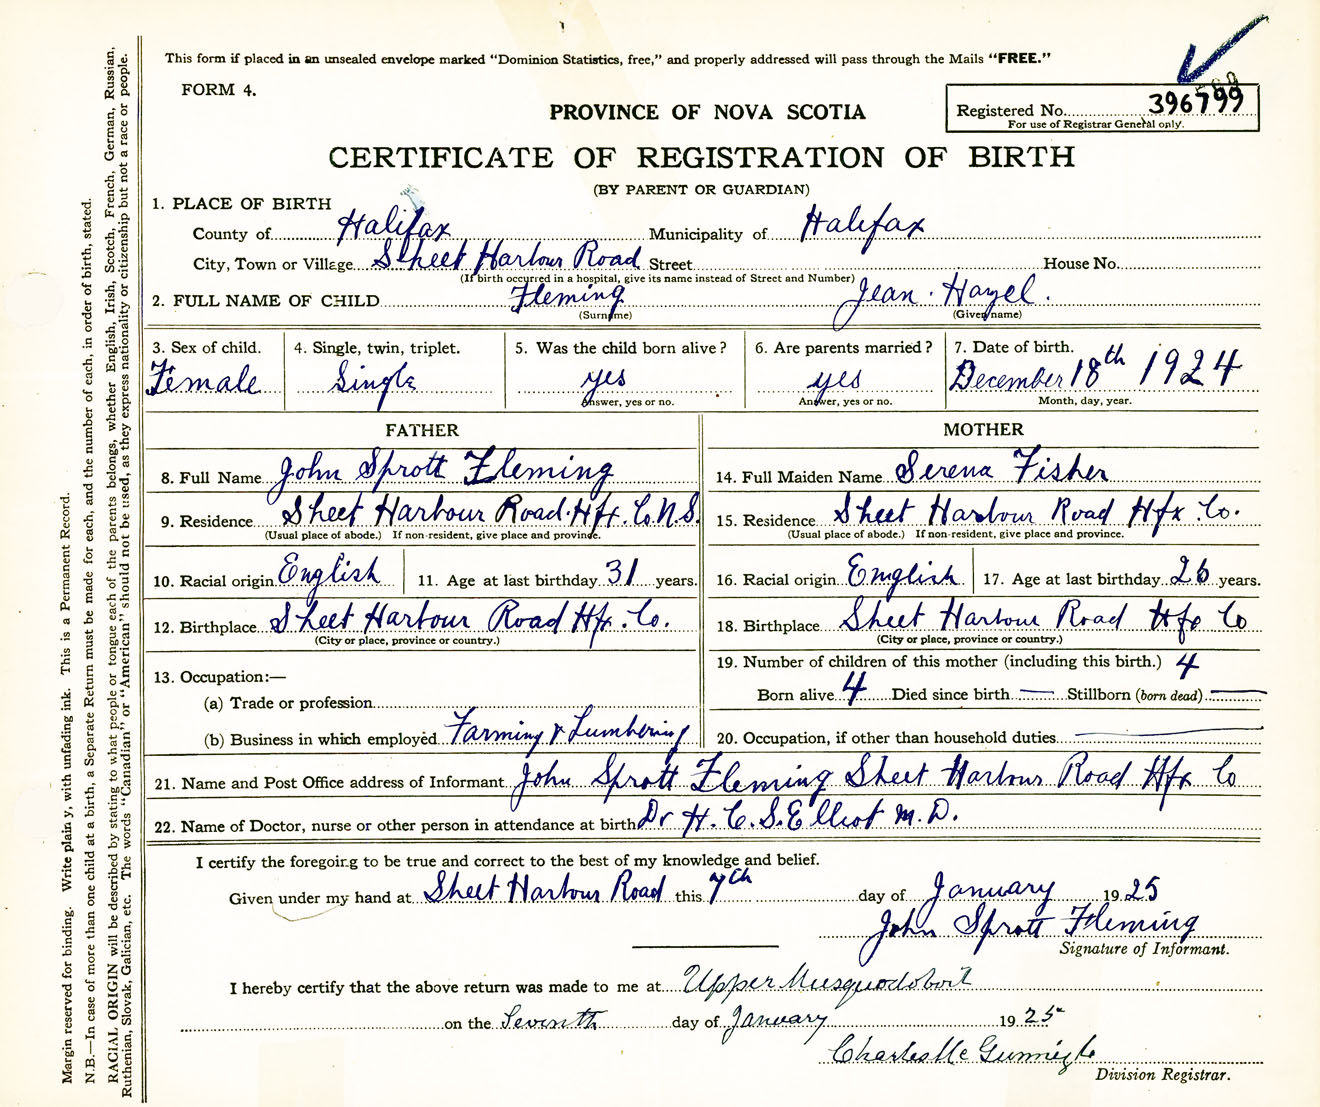 This form if placed in an unsealed envelope marked "Dominion Statistics, free," and properly addressed will pass through the Mails "FREE."
FORM 4.
PROVINCE OF NOVA SCOTIA
Registered No. 396799
For use of Registrar General only.
CERTIFICATE OF REGISTRATION OF BIRTH
(BY PARENT OR GUARDIAN)
1. PLACE OF BIRTH
County of Halifax Municipality of Halifax
City, Town or Village Sheet Harbour Road Street House No.
(If birth occurred in a hospital, give its name instead of Street and Number)
2. FULL NAME OF CHILD Fleming Jean. Hazel.
(Surname) (Given name)
3. Sex of child. 4. Single, twin, triplet. 5. Was the child born alive? 6. Are parents married? 7. Date of birth.
Female Single yes yes December 18th 1924
Answer, yes or no. Answer, yes or no. Month, day, year.
FATHER MOTHER
8. Full Name John Sprott Fleming 14. Full Maiden Name Serena Fisher
9. Residence Sheet Harbour Road. Hfx. Co. N.S. 15. Residence Sheet Harbour Road Hfx Co.
(Usual place of abode.) If non-resident, give place and province. (Usual place of abode.) If non-resident, give place and province.
10. Racial origin English 11. Age at last birthday 31 years. 16. Racial origin English 17. Age at last birthday 26 years.
12. Birthplace Sheet Harbour Road Hfx. Co. 18. Birthplace Sheet Harbour Road Hfx Co
(City or place, province or country.) (City or place, province or country.)
19. Number of children of this mother (including this birth.) 4
13. Occupation:—
Born alive 4 Died since birth — Stillborn (born dead) —
(a) Trade or profession
(b) Business in which employed Farming & Lumbering 20. Occupation, if other than household duties. —
21. Name and Post Office address of Informant John Sprott Fleming Sheet Harbour Road Hfx Co
22. Name of Doctor, nurse or other person in attendance at birth Dr H. C. S. Elliot M.D.
I certify the foregoing to be true and correct to the best of my knowledge and belief.
Given under my hand at Sheet Harbour Road this 7th day of January 1925
John Sprott Fleming
Signature of Informant.
I hereby certify that the above return was made to me at Upper Musquodoboit
on the Seventh day of January 1925
Charles Mc
Division Registrar.
Margin reserved for binding. Write plainly, with unfading ink. This is a Permanent Record.
N.B.—In case of more than one child at a birth, a Separate Return must be made for each, and the number of each, in order of birth, stated.
RACIAL ORIGIN will be described by stating to what people or tongue each of the parents belongs, whether English, Irish, Scotch, French, German, Russian,
Ruthenian, Slovak, Galician, etc. The words "Canadian" or "American" should not be used, as they express nationality or citizenship but not a race or people.